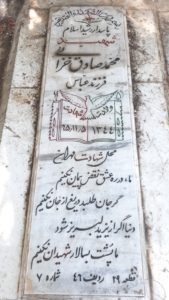 پاسدار رشید اسلام
شهید
محمد صادق غزالی
فرزند عباس
ولادت شهادت
۱۳۴۴ ۶۵/۱۲/۵
محل شهادت مهران
ما در ره عشق نقض پیمان نکنیم
گر جان طلبد دریغ از جان نکنیم
دنیا اگر از یزید لبریز شود
ما پشت به سالار شهیدان نکنیم
قطعه ۲۹ ردیف ۴۶ شماره ۷